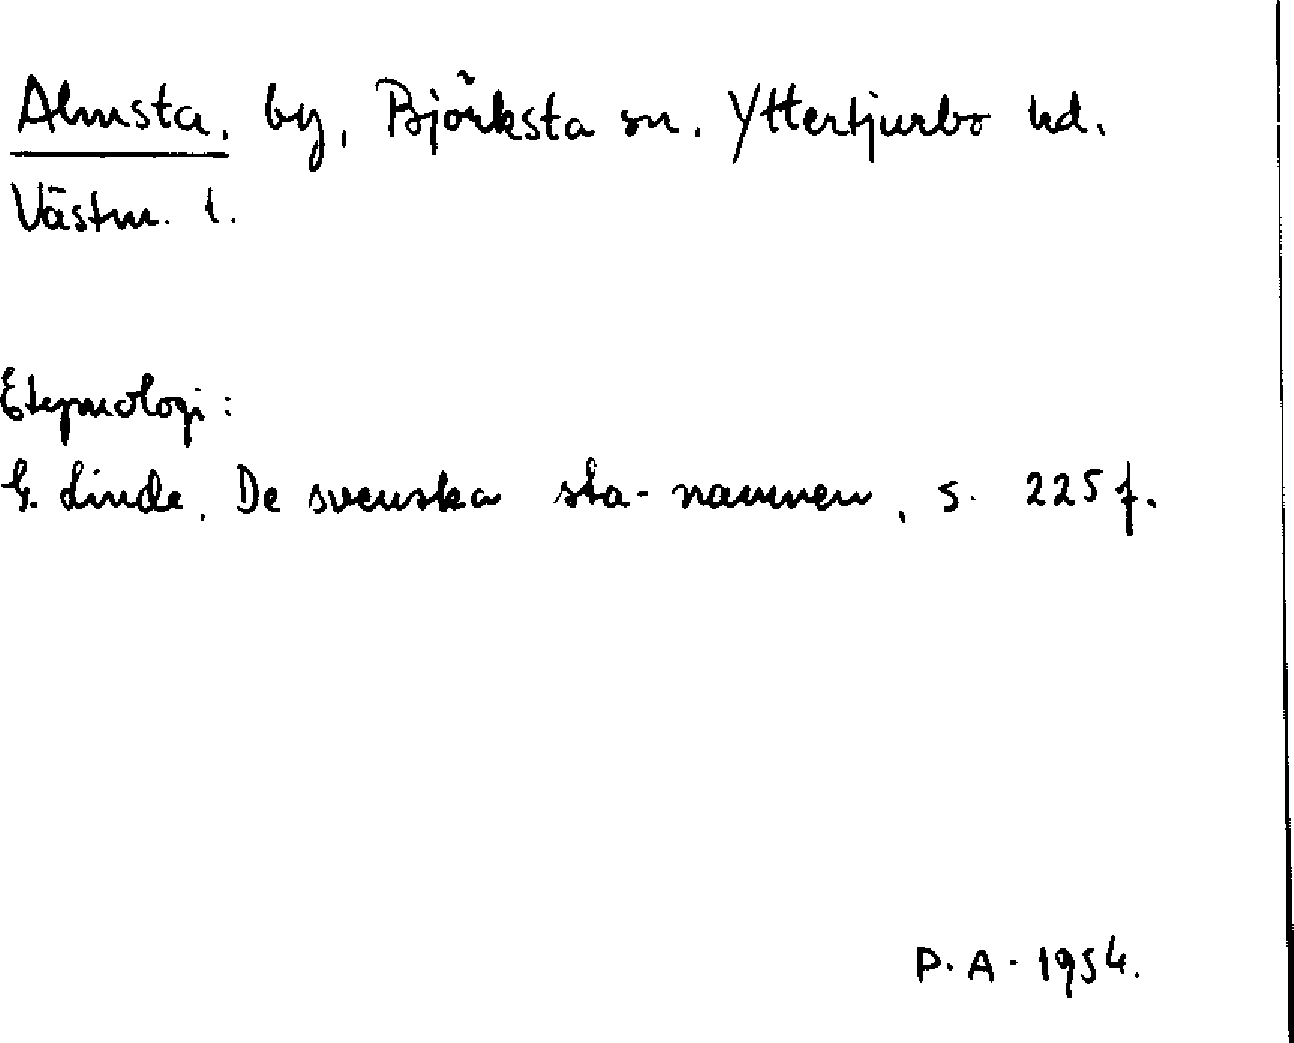 Almsta, by, Björksta sn. Yttertjurbo hd.
Västm. l.
Etymologi:
G. Linde, De svenska sta-namnen, s. 225 f.
P. A. 1954.